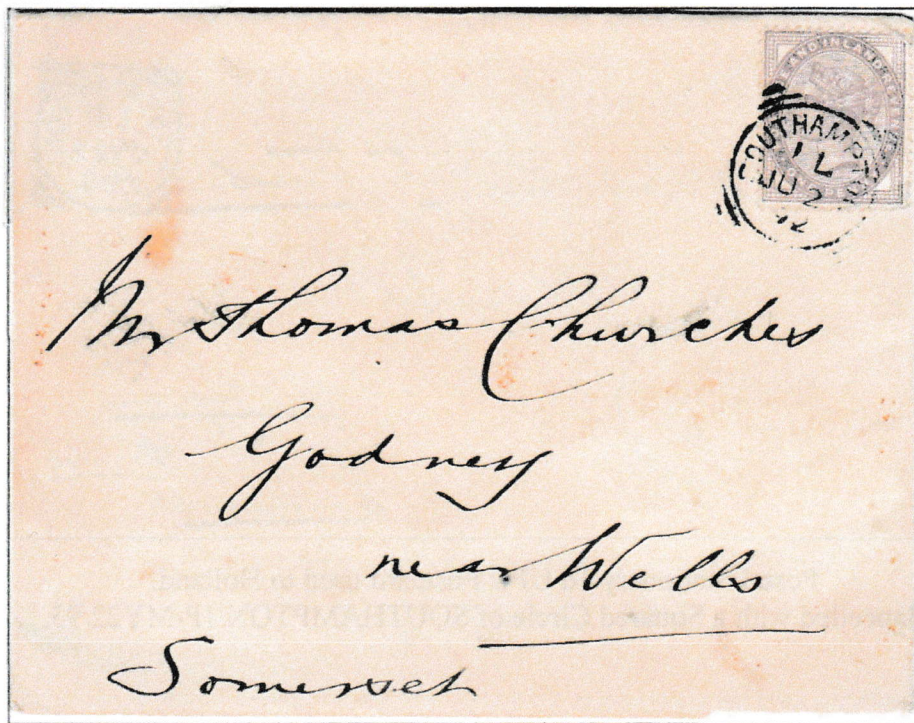 SOUTHAMPTON
1 L
JU 2
92
Mr Thomas Churches
Godney
near Wells
Somerset